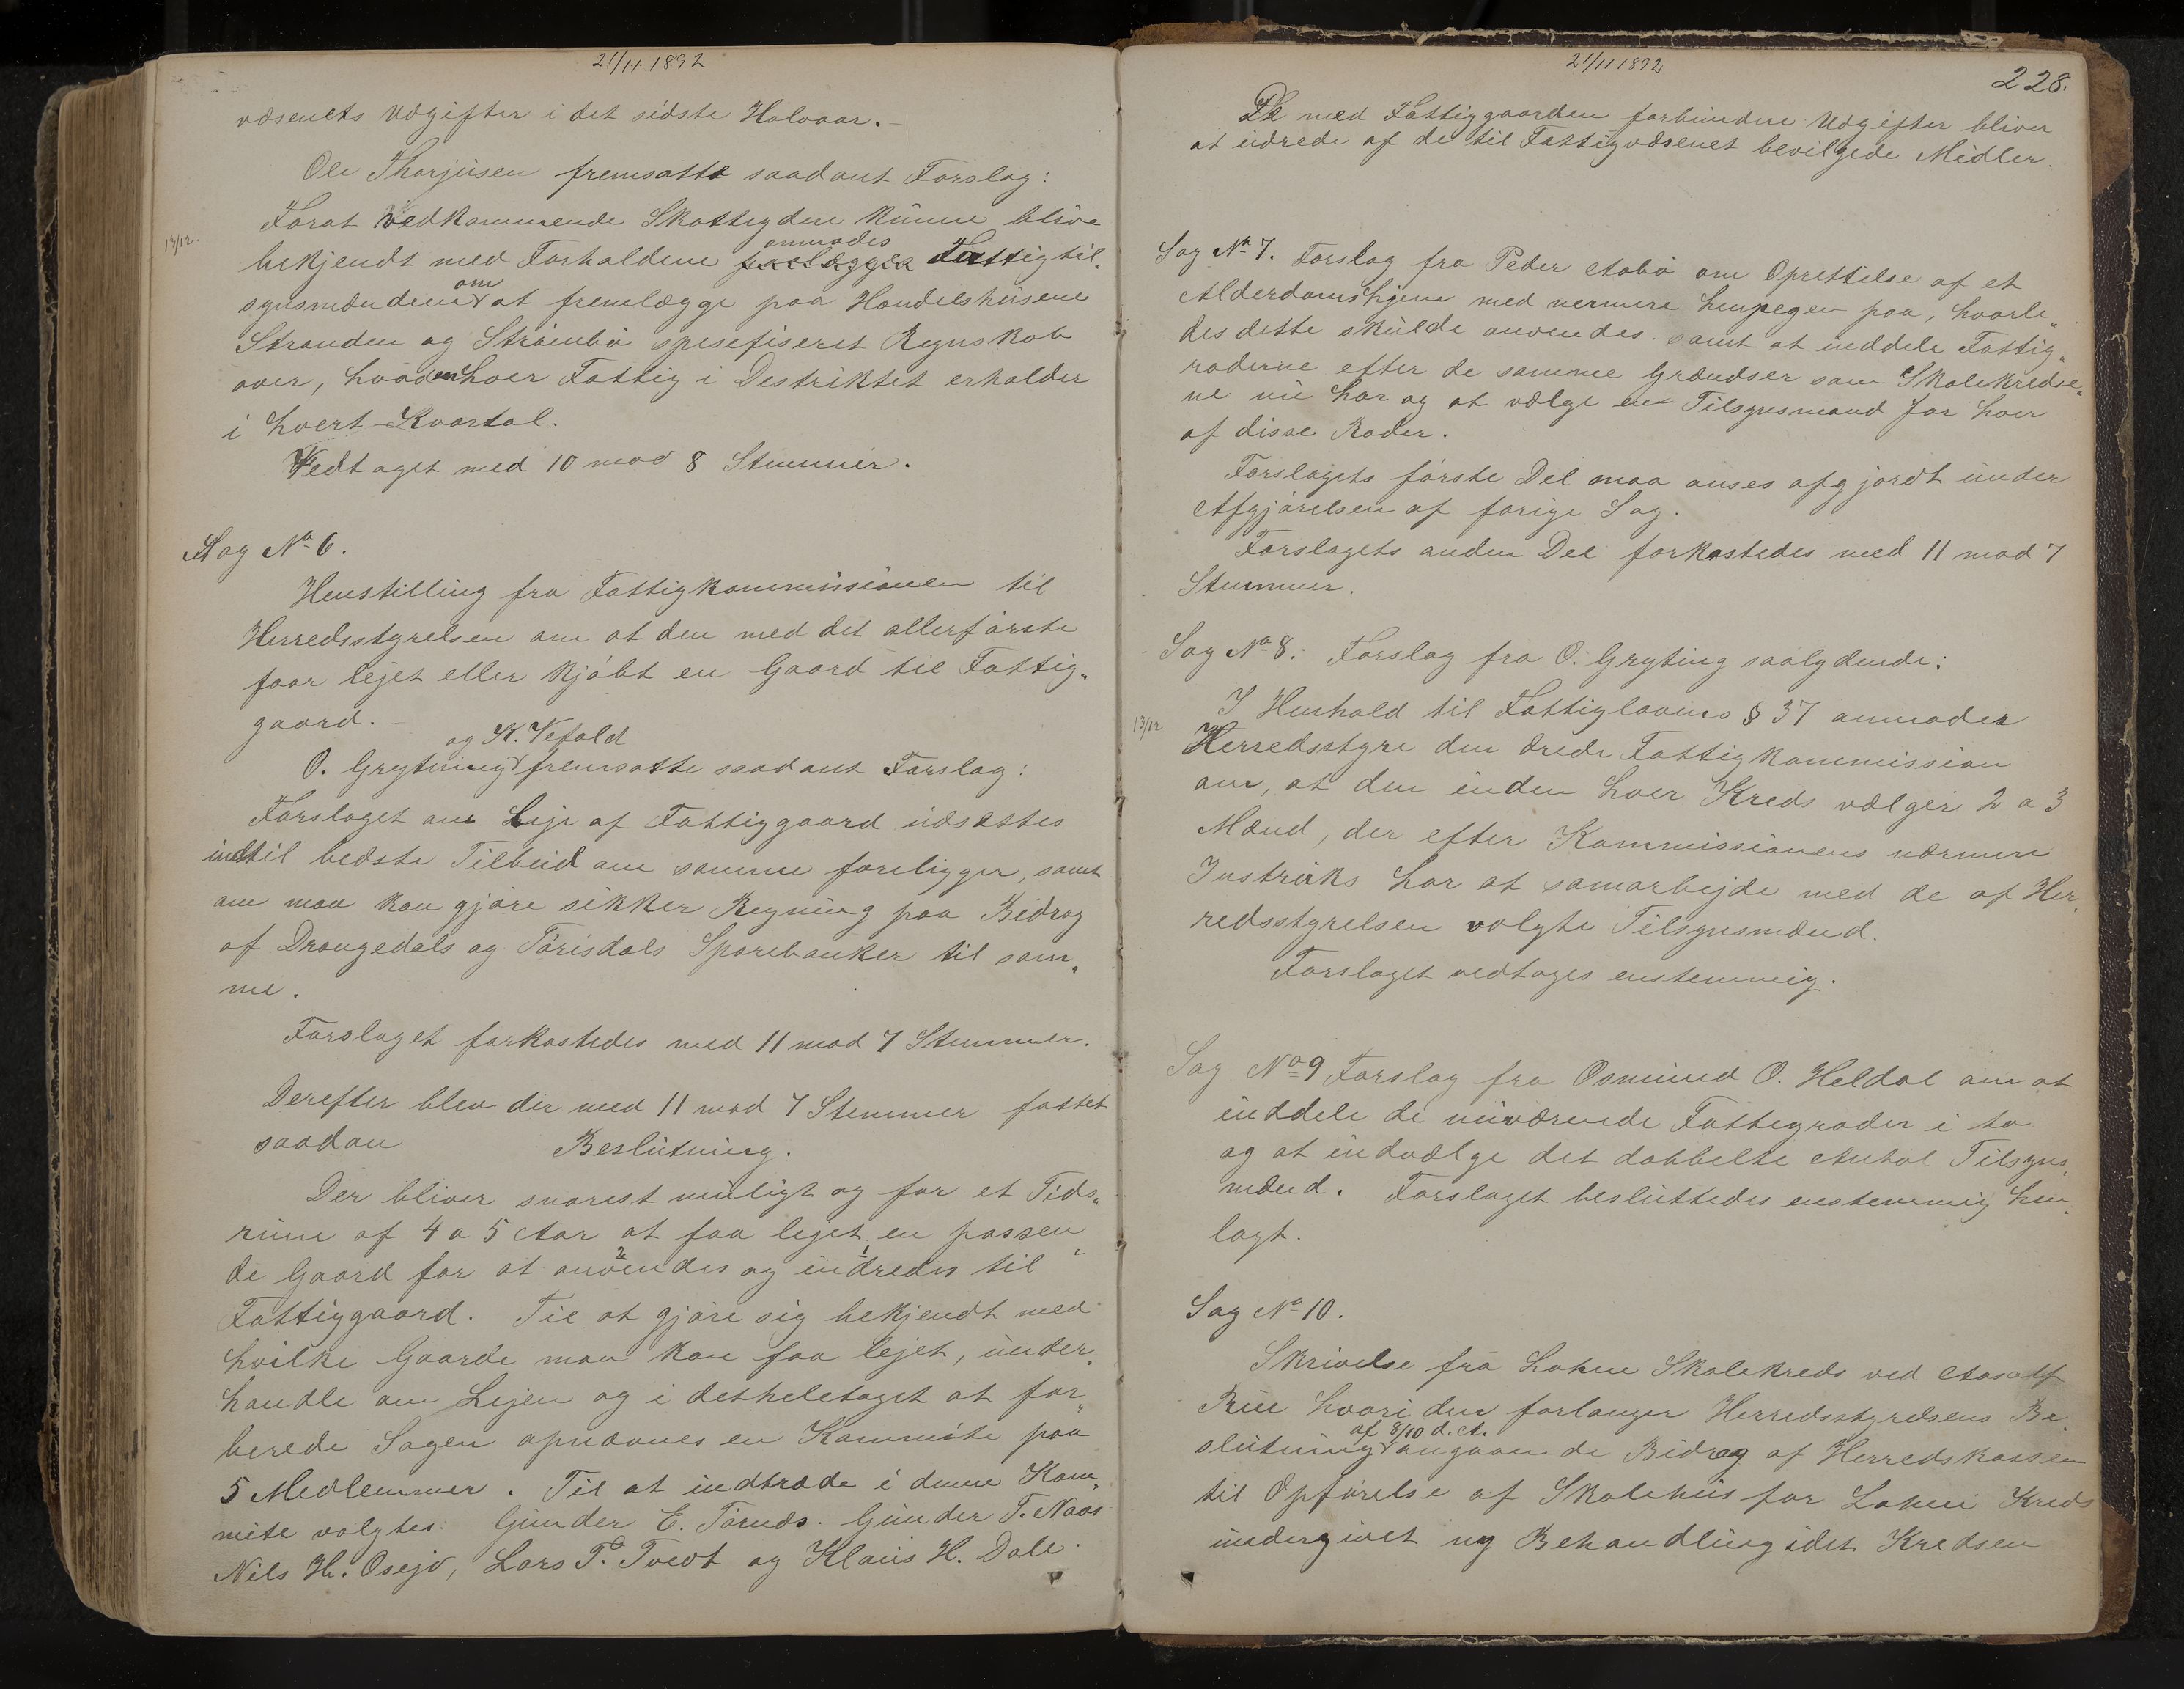 21/11 1892
væsenets Udgifter i det sidste Halvaar.
Ole Thorjusen fremsatte saadant Forslag:
Forat vedkommende Skatteydere kunne blive
13/12.
bekjendt med Forholdene anmodes Fattigtil„
synsmændene om at fremlægge paa Handelshusene
Stranden og Strömbö spesefiseret Regnskab
over, hvad en hver Fattig i Destriktet erholder
i hvert Kvartal.
Vedtaget med 10 mod 8 Stemmer.
Sag No 6.
Henstilling fra Fattigkommissionen til
Herredsstyrelsen om at den med det allerførste
faar lejet eller kjøbt en Gaard til Fattig„
gaard.
og K. Vefald
O. Grytning fremsatte saadant Forslag:
Forslaget om Leje af Fattiggaard udsættes
indtil bedste Tilbud om samme foreligger, samt
om man kan gjøre sikker Regning paa Bidrag
af Drangedals og Törisdals Sparebanker til sam„
me.
Forslaget forkastedes med 11 mod 7 Stemmer.
Derefter blev der med 11 mod 7 Stemmer fattet
saadan Beslutning.
Der bliver snarest muligt og for et Tids„
rum af 4 a 5 Aar at faa lejet en passen„
de Gaard for at 2 anvendes og 1 indredes til
Fattiggaard. Til at gjøre sig bekjendt med
hvilke Gaarde man kan faa lejet, under„
handle om Lejen og i detheletaget at for„
berede Sagen opnævnes en Kommite paa
5 Medlemmer. Til at indtræde i denne Kom„
mite valgtes: Gunder E. Törnds. Gunder T. Naas
Nils H. Osejo, Lars P. Tvedt og Klaus H. Dale.
21/11 1892
228.
De med Fattiggaarden forbundne Udgifter bliver
at udrede af de til Fattigvæsenet bevilgede Midler.
Sag No 7. Forslag fra Peder Aabö om Oprettelse af et
Alderdomshjem med nermere henpegen paa, hvorle„
des dette skulde anvendes. samt at inddele Fattig„
roderne efter de samme Grændser som Skolekredse„
ne nu har og at vælge en Tilsynsmand for hver
af disse Roder.
Forslagets første Del maa anses afgjordt under
Afgjørelsen af forige Sag.
Forslagets anden Del forkastedes med 11 mod 7
Stemmer.
Sag No 8: Forslag fra O. Gryting saalydende:
I Henhold til Fattiglovens § 37 anmoder
13/12
Herredsstyre den ærede Fattigkommission
om, at den inden hver Kreds vælger 2 a 3
Mænd, der efter Kommissionens nærmere
Instruks har at samarbejde med de af Her„
redsstyrelsen valgte Tilsynsmænd.
Forslaget vedtages enstemmig.
Sag No 9 Forslag fra Osmund O. Heldal om at
inddele de nuværende Fattegroder i to
og at indvælge det dobbelte Antal Tilsyns„
mænd. Forslaget besluttedes enstemmig hen„
lagt.
Sag No 10.
Skrivelse fra Lohne Skolekreds ved Aasolf
Rue hvori den forlanger Herredsstyrelsens Be„
slutning af 8/10 d. A. angaaende Bidrag af Herredskassen
til Opførelse af Skolehus for Lohne Kreds
undergivet ny Behandling idet Kredsen